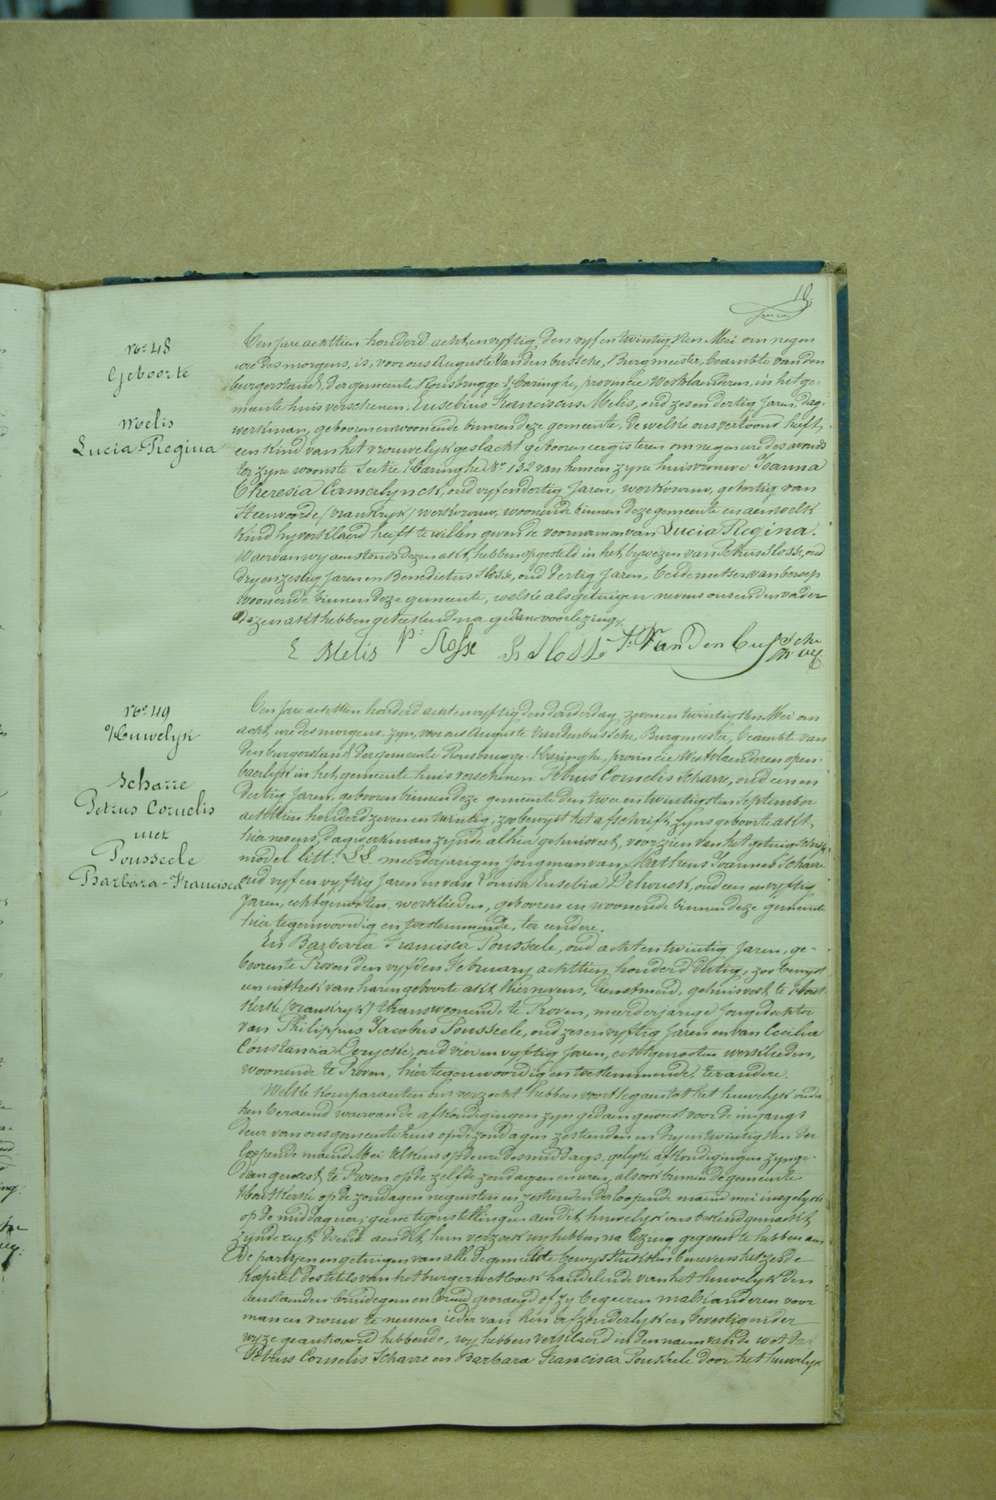 19
No 48
Geboorte
Melis
Lucia Regina
Den jare achttien honderd achtenvyftig, den vyfentwintigsten Mei om negen
ure des morgens, is, voor ons Auguste Vandenbussche, Burgmeester, beambte van den
burgerstand, der gemeente Rousbrugge-Haringhe, provincie Westvlanderen, in het ge-
meente huis verschenen, Eusebius Franciscus Melis, oud zesendertig jaren, dag-
werkman, geboren en woonende binnen deze gemeente, de welke ons vertoond heeft,
een kind van het vrouwelyk geslacht geboren eergisteren om negen ure des avonds
ter zyne woonste Sectie Haringhe No 132 van hem en zyne huisvrouwe Joanna
Theresia, oud vyfendertig jaren, werkvrouw, geboortig van
Steenvoorde (Vrankryk) werkvrouw, woonende binnen deze gemeente en aen welk
kind hy verklaerd heeft te willen geven de voornamen van Lucia Regina.
Waervan wy aenstonds dezen akt hebben opgesteld in het bywezen van Slosse, oud
dryenzestig jaren en Benedictus Slosse, oud dertig jaren, beide van beroep
woonende binnen deze gemeente, welke als getuigen nevens ons en den vader
dezen akt hebben geteekend na gedane voorlezing.
E Melis Slosse B Slosse A. Vandenbussche
No 49
Huwelyk
Scharre
Petrus Cornelis
met
Pousseele
Barbara-Francisca
Den jare achttien honderd achtenvyftig den donderdag, zevenentwintigsten Mei om
acht ure des morgens, zyn, voor ons Auguste Vandenbussche, Burgmeester, beambte van
den burgerstand der gemeente Rousbrugge-Haringhe, provincie Westvlanderen open-
baerlyk in het gemeente huis verschenen Petrus Cornelis Scharre, oud eenen
dertig jaren, geboren binnen deze gemeente den tweeentwintigsten September
achttien honderd zevenentwintig, zoo bewyst het afschrift zyns geboorte akt,
hier nevens, dagwerkman zynde alhier gehuisvest, voorzien van het getuigschrift
model litt. meerderjarigen jongman van Mattheus Joannes Scharre
oud vyfenvyftig jaren en van Louisa Eusebia, oud eenenvyftig
jaren, echtgenoten, werklieden, geboren en woonende binnen deze gemeente
hier tegenwoordig en toestemmende, ter eendere.
En Barbara Francisca Pousseele, oud achtentwintig jaren, ge-
boren te Proven den vyfden February achttien honderd dertig, zoo bewyst
een uittrek van haren geboorte akt hiernevens, dienstmeid, gehuisvest te Hout-
kerke (Vrankryk) thans woonende te Proven, meerderjarige jongedochter
van Philippus Jacobus Pousseele, oud zesenvyftig jaren en van Cecilia
Constancia, oud vierenvyftig jaren, echtgenoten werklieden,
woonende te Proven, hier tegenwoordig en toestemmende ter andere.
Welke komparanten ons verzocht hebben voort te gaan tot het huwelyk onder
hen beraemd waervan de afkondigingen zyn gedaen geweest voor de ingangs
deur van ons gemeente huis op de zondagen zestienden en dryentwintigsten der
loopende maend Mei telkens op de ure des middags, gelyke afkondigingen zyn ge-
daen geweest te Proven op de zelfde zondagen en uren, alsook binnen de gemeente
Houtkerke op de zondagen negensten en zestienden der loopende maend mei insgelyks
op de middag ure; geene tegenstellingen aen dit huwelyk ons bekend gemaekt
zynde recht doende aen dit hun verzoek wy hebben na lezing gegeven te hebben aen
de partyen en getuigen van alle de gemelde bewysstukken benevens het zesde
kapitel des titels van het burger wetboek handelende van het huwelyk den
aenstaenden bruidegom en bruid gevraegd of zy begeeren malkanderen voor
man en vrouw te nemen ieder van hen afzonderlyk en bevestigender
wyze geantwoord hebbende, wy hebben verklaerd in den naem van de wet dat
Petrus Cornelis Scharre en Barbara Francisca Pousseele door het huwelyk